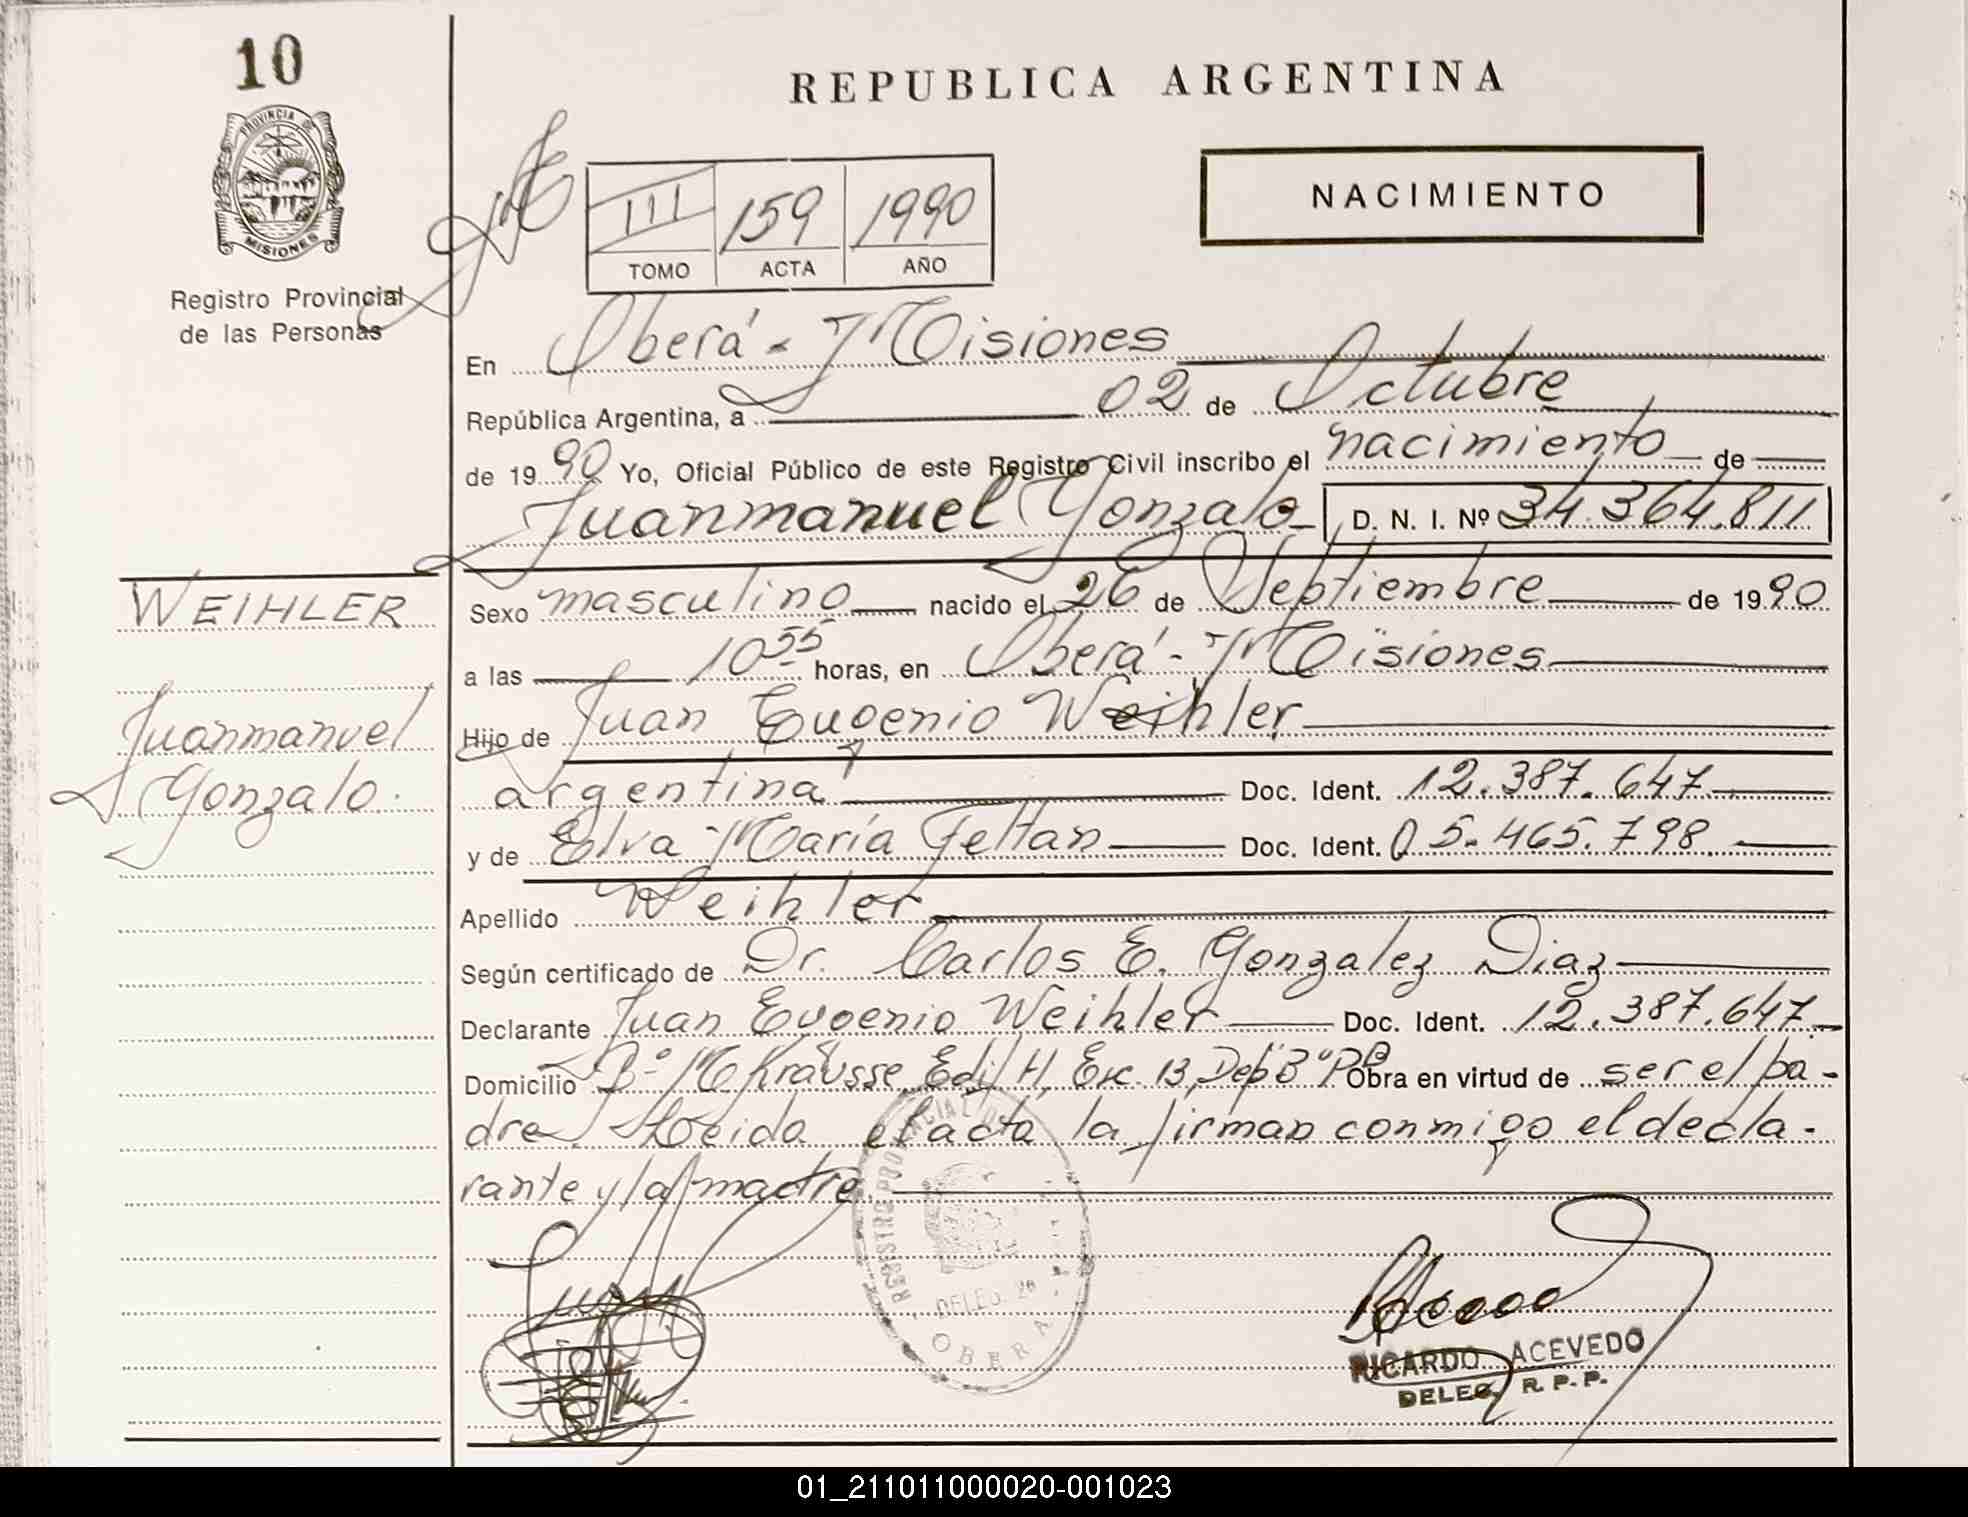 10
PROVINCIA DE
MISIONES
Registro Provincial
de las Personas
REPUBLICA ARGENTINA
NACIMIENTO
III 159 1990
TOMO ACTA AÑO
En Oberá - Misiones
República Argentina, a 02 de Octubre
de 1990 Yo, Oficial Público de este Registro Civil inscribo el nacimiento de
Juanmanuel Gonzalo D. N. I. Nº 34.364.811
WEIHLER
Juanmanuel
Gonzalo.
Sexo masculino nacido el 26 de Septiembre de 1990
a las 10 55 horas, en Oberá - Misiones
Hijo de Juan Eugenio Weihler
argentina Doc. Ident. 12.387.647
y de Elva María Feltan Doc. Ident. 05.465.798
Apellido Weihler
Según certificado de Dr. Carlos E. Gonzalez Diaz
Declarante Juan Eugenio Weihler Doc. Ident. 12.387.647
Domicilio Bº Krausse, Edif H, Esc. 13, Dep B Obra en virtud de ser el pa-
dre. Leida el acta la firman conmigo el decla-
rante y la madre
REGISTRO PROVINCIAL DE
DELEG. 26
OBERA
RICARDO ACEVEDO
DELEG. R. P. P.
01_211011000020-001023